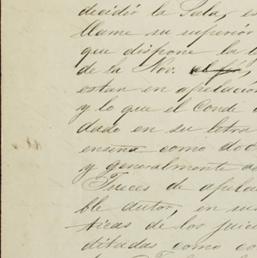 decidir la Sala, es
llame su superior
que dispone la l
de la Nov.
estan en apelacion
y lo que el Conde
dado en su letra
enseña como doc
y generalmente de
Jueces de apela
ble autor, en su
ticas de los juic
ditadas como co